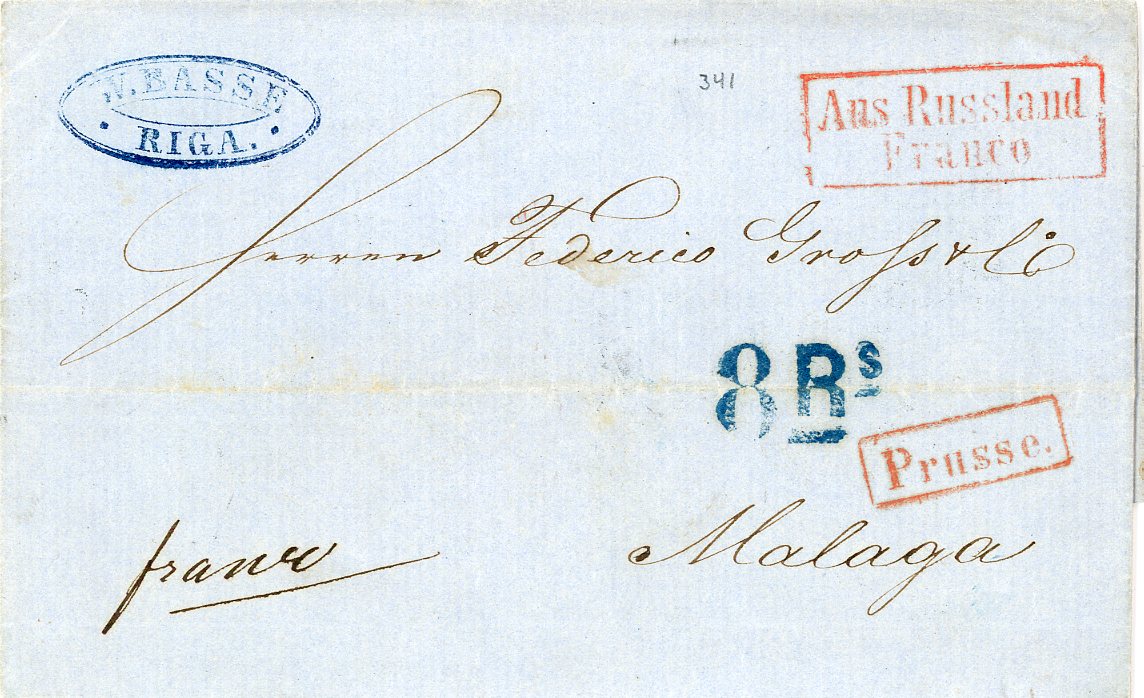 W. BASSE
RIGA.
341
Aus Russland
Franco
Herren Federico Gross & Co
8 Rs
Prusse.
franco
Malaga